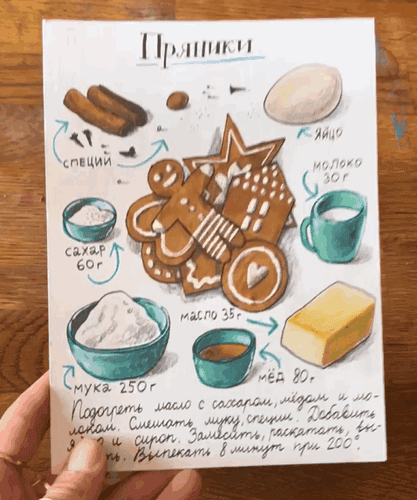 Пряники
специи
яйцо
молоко
30 г
сахар
60 г
масло 35 г
мука 250 г
мёд 80 г
Подогреть масло с сахаром, мёдом и мо-
локом. Смешать муку, специи. Добавить
и сироп. Замесить, раскатать, вы-
Выпекать 8 минут при 200°.